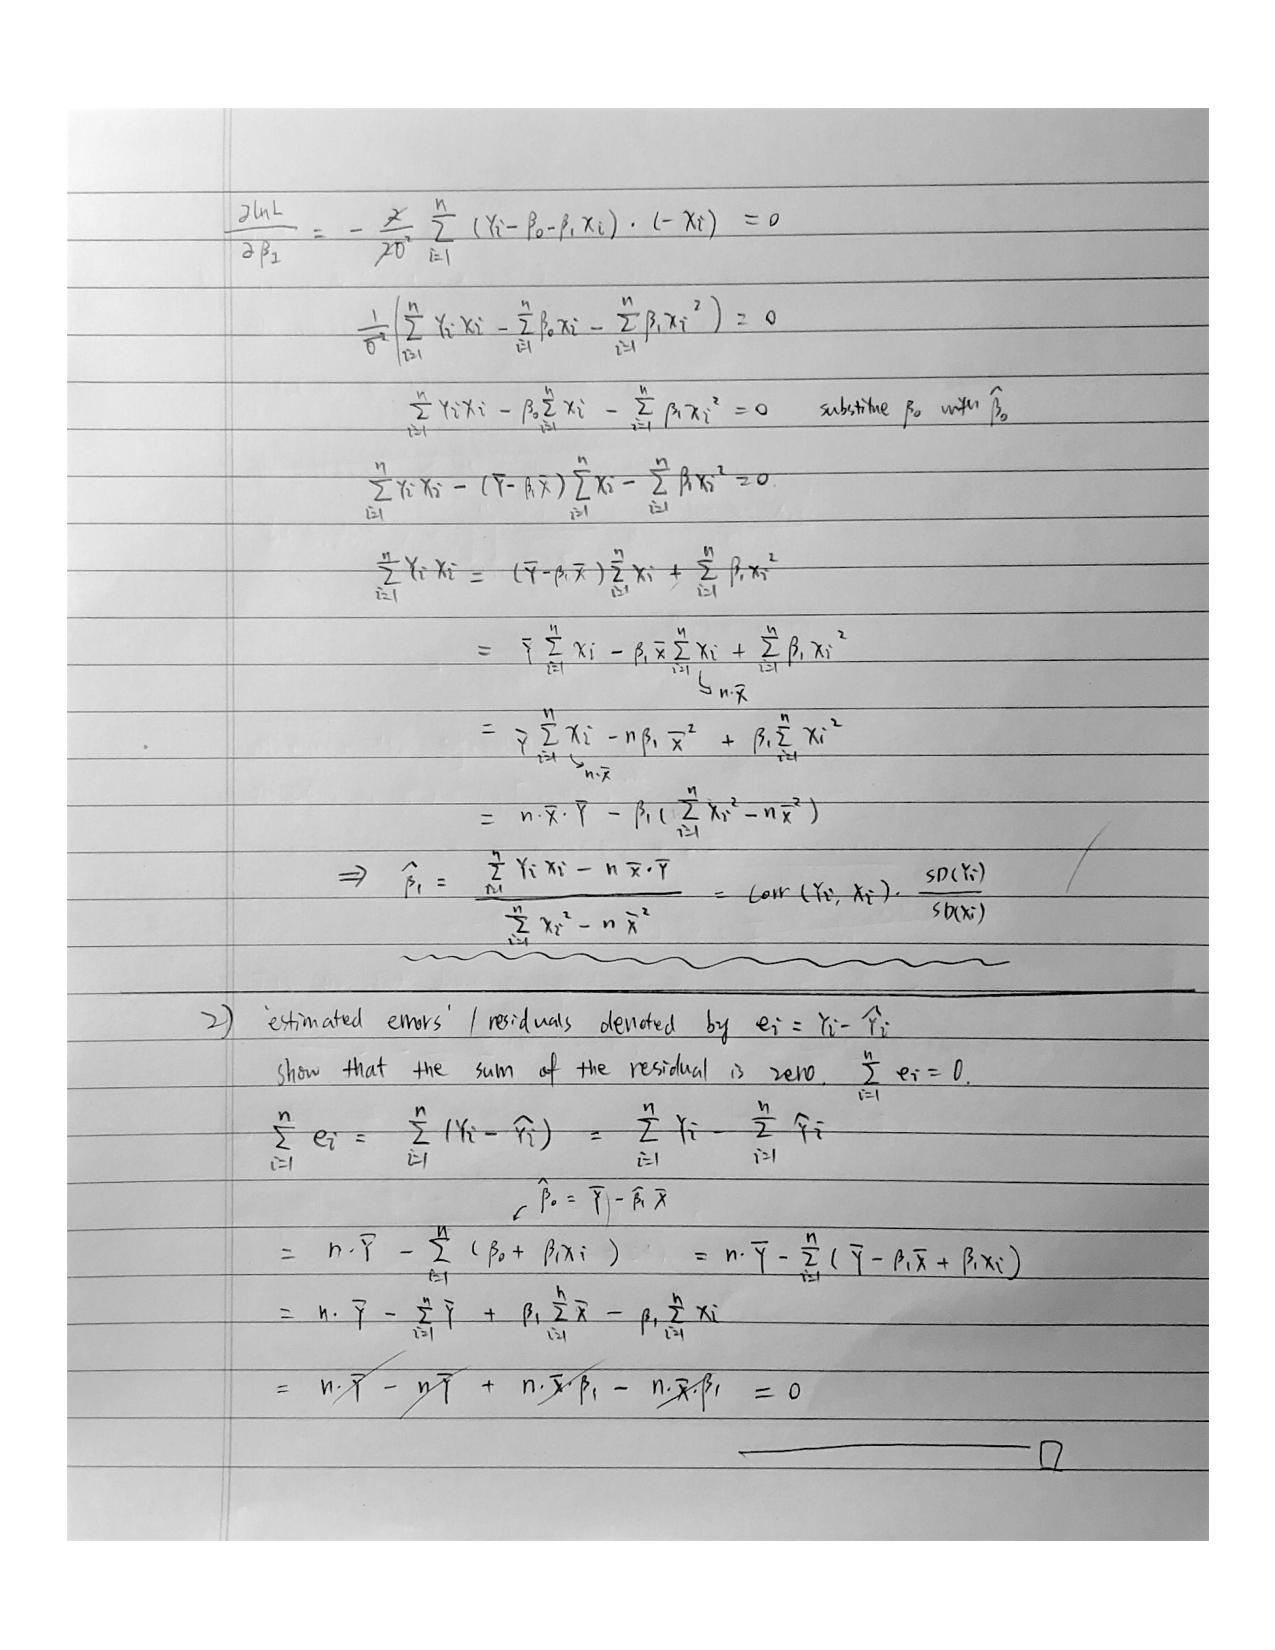 ∂lnL/∂β₁ = - 2/2σ² Σ_{i=1}^{n} (Yi - β₀ - β₁Xi) · (-Xi) = 0
1/σ² (Σ_{i=1}^{n} YiXi - Σ_{i=1}^{n} β₀Xi - Σ_{i=1}^{n} β₁Xi²) = 0
Σ_{i=1}^{n} YiXi - β₀ Σ_{i=1}^{n} Xi - Σ_{i=1}^{n} β₁Xi² = 0 substitue β₀ with β̂₀
Σ_{i=1}^{n} YiXi - (Ȳ - β₁X̄) Σ_{i=1}^{n} Xi - Σ_{i=1}^{n} β₁Xi² = 0.
Σ_{i=1}^{n} YiXi = (Ȳ - β₁X̄) Σ_{i=1}^{n} Xi + Σ_{i=1}^{n} β₁Xi²
= Ȳ Σ_{i=1}^{n} Xi - β₁X̄ Σ_{i=1}^{n} Xi + Σ_{i=1}^{n} β₁Xi²
↳ n·X̄
= Ȳ Σ_{i=1}^{n} Xi - nβ₁X̄² + β₁ Σ_{i=1}^{n} Xi²
↳ n·X̄
= n·X̄·Ȳ - β₁(Σ_{i=1}^{n} Xi² - nX̄²)
⇒ β̂₁ = (Σ_{i=1}^{n} YiXi - nX̄·Ȳ) / (Σ_{i=1}^{n} Xi² - nX̄²) = Corr(Yi, Xi) · SD(Yi)/SD(Xi)
2) 'estimated errors' / residuals denoted by ei = Yi - Ŷi
show that the sum of the residual is zero. Σ_{i=1}^{n} ei = 0.
Σ_{i=1}^{n} ei = Σ_{i=1}^{n} (Yi - Ŷi) = Σ_{i=1}^{n} Yi - Σ_{i=1}^{n} Ŷi
↙ β̂₀ = Ȳ - β̂₁X̄
= n·Ȳ - Σ_{i=1}^{n} (β₀ + β₁Xi) = n·Ȳ - Σ_{i=1}^{n} (Ȳ - β₁X̄ + β₁Xi)
= n·Ȳ - Σ_{i=1}^{n} Ȳ + β₁ Σ_{i=1}^{n} X̄ - β₁ Σ_{i=1}^{n} Xi
= n·Ȳ - nȲ + n·X̄·β₁ - n·X̄·β₁ = 0